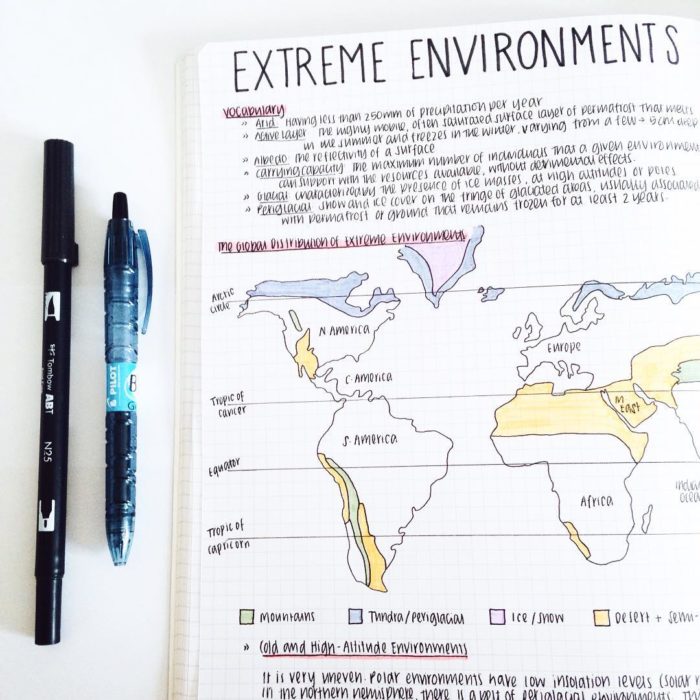 EXTREME ENVIRONMENTS
vocabulary
» Arid: Having less than 250mm of precipitation per year
» Active layer: The highly mobile, often saturated surface layer of permafrost that melts
in the summer and freezes in the winter. varying from a few → 5cm deep
» Albedo: The reflectivity of a surface
» carrying capacity: The maximum number of individuals that a given environment
can support with the resources available, without detrimental effects.
» Glacial: characterized by the presence of ice masses, at high altitudes or poles
» Periglacial: Snow and ice cover on the fringe of glaciated areas, usually associated
with permafrost or ground that remains frozen for at least 2 years.
The Global Distribution of Extreme Environments
Arctic
Circle
N. America
Europe
C. America
Tropic of
cancer
M.
East
S. America
Equator
Indian
Ocean
Africa
Tropic of
capricorn
Mountains
Tundra/periglacial
Ice/snow
Desert + semi-
» Cold and High-Altitude Environments
It is very uneven. Polar environments have low insolation levels (solar
in the northern hemisphere, there is a belt of periglacial environments. Th
Tombow ABT
N25
PILOT
B
G